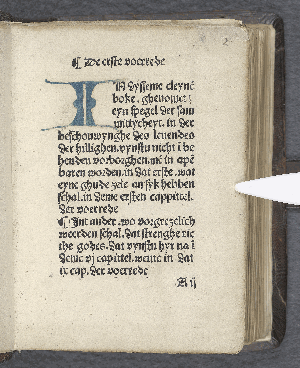 ¶ De erste voerrede
IN dysseme cleyne
boke. ghenomet
eyn spegel der sam
mitticheyt. in der
beschouwynghe des leuendes
der hillighen. vynstu nicht i be
henden vorborghen. mē in apē
baren worden. in dat erste. wat
eyne ghude zele an syk hebben
schal. in deme ersten cappittel.
der voerrede
¶ Int ander. wo vorgrezelich
weerden schal. dat strenghe ric
the godes. dat vynstu hyr na i
deme vj capittel. wente in dat
ix cap. der voerrede
A ij